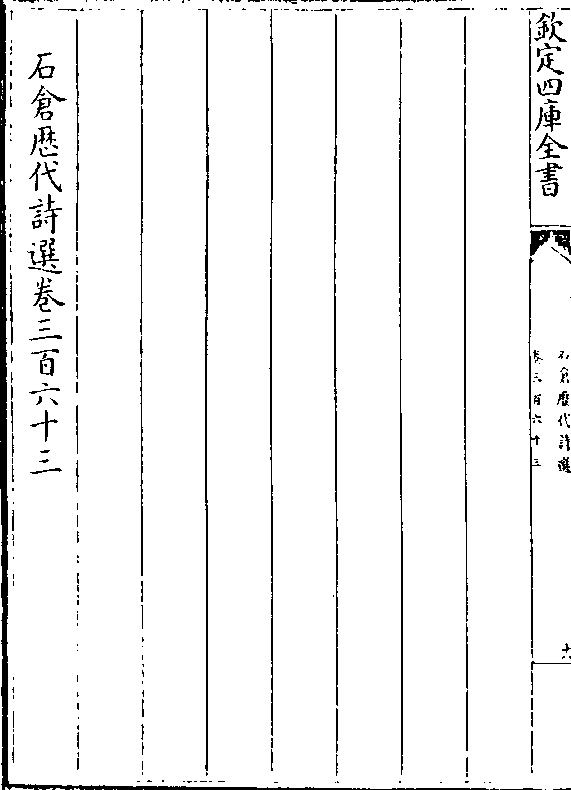 欽定四庫全書
石倉歷代詩選
卷三百六十三
十六
石倉歷代詩選卷三百六十三